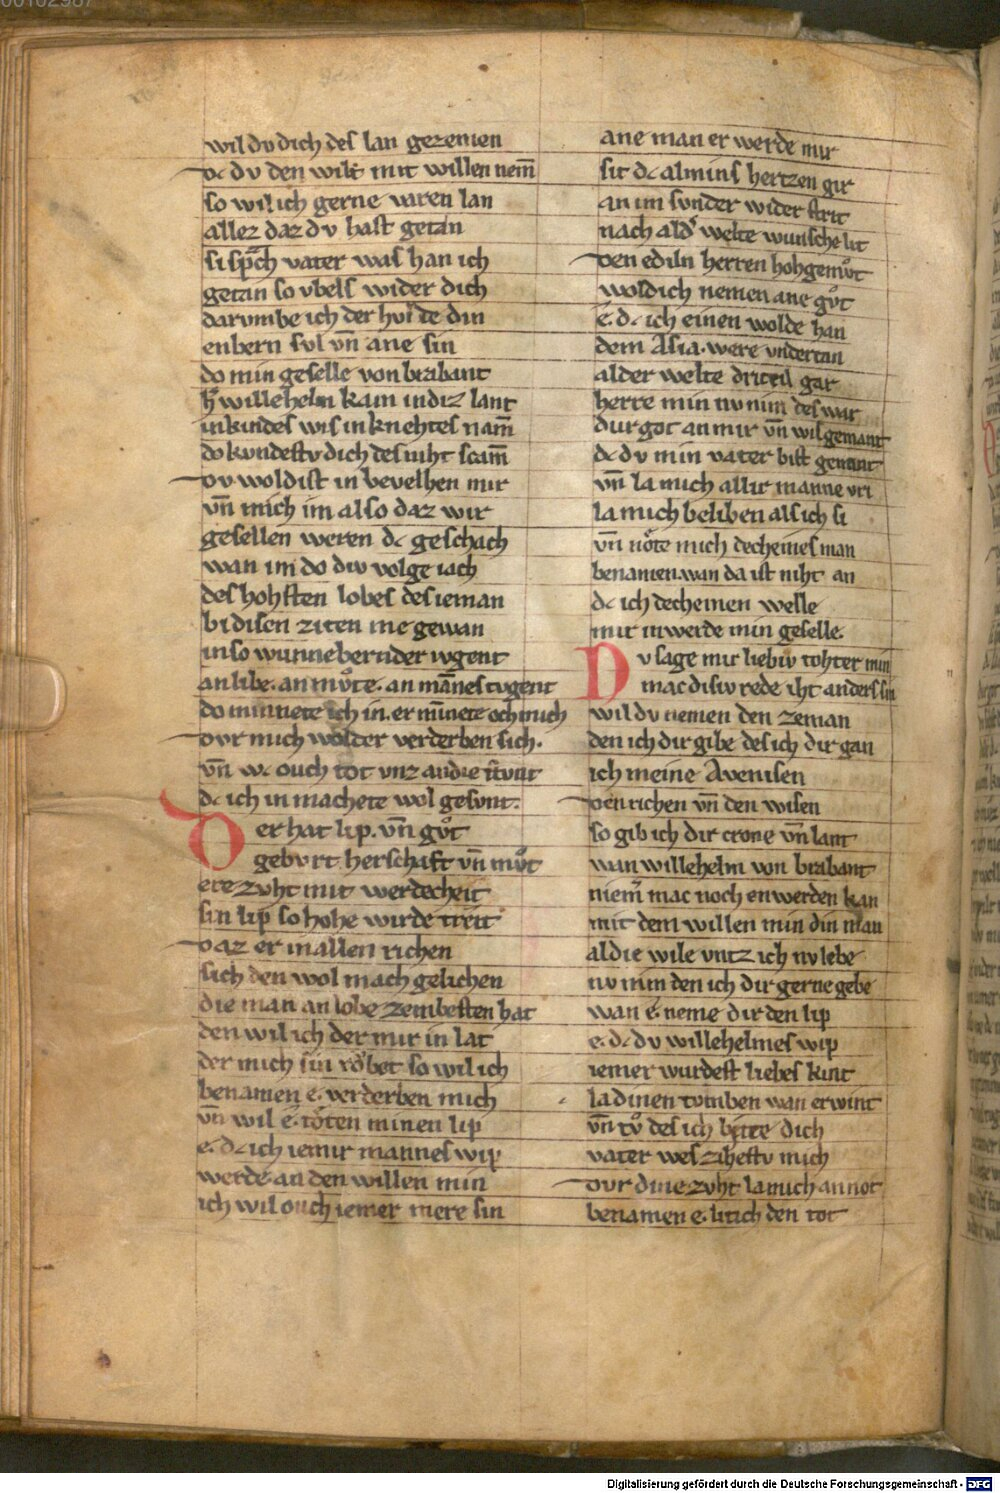 wil dv dich des lan gezemen
dc dv den wilt mit willen nem̄
so wil ich gerne varen lan
allez daz dv hast getan
si sp̄ch vater was han ich
getan so vbels wider dich
darvmbe ich der hulde din
enbern svl vn̄ ane sin
do min geselle von brabant
h̄ willehelm kam in diz lant
in kindes wis in knehtes nam̄
do kondestv dich des niht scam̄
dv woldist in bevelhen mir
vn̄ mich im also daz wir
gesellen weren dc geschach
wan im do div volge iach
des hohsten lobes des ieman
bi disen ziten me gewan
in so wunnebernder ivgent
an libe. an mv̊te. an mānes tvgent
do minnete ich in. er mīnete och mich
dvr mich wolder verderben sich.
vn̄ wc ouch tot vnz an die stvnt
dc ich in machete wol gesvnt.
Der hat lip. vn̄ gv̊t
gebvrt herschaft vn̄ mv̊t
ere zvht mit werdecheit
sin lip so hohe wirde treit
daz er in allen richen
sich den wol mach gelichen
die man an lobe zem besten hat
den wil ich der mir in lat
der mich sin robet so wil ich
benamen e. verderben mich
vn̄ wil e. to̊ten minen lip
e. dc ich iemir mannes wip
werde an den willen min
ich wil ouch iemer mere sin
ane man er werde mir
sit dc al mins hertzen gir
an im svnder wider strit
nach ald' welte wunsche lit
den ediln herren hohgemv̊t
wold ich nemen ane gv̊t
e. dc ich einen wolde han
dem Asia. were vndertan
al der welte dritteil gar
herre min nv nim des war
dur got an mir vn̄ wis gemant
dc dv min vater bist genant
vn̄ la mich allir manne vri
la mich beliben als ich si
vn̄ no̊te mich decheines man
benamen. wan da ist niht an
dc ich decheinen welle
mir inwerde min geselle.
Dv sage mir liebiv tohter min
mac disiv rede iht anders sin
wil dv nemen den zeman
den ich dir gibe des ich dir gan
ich meine Avenisen
den richen vn̄ den wisen
so gib ich dir crone vn̄ lant
wan willehelm von brabant
niem̄ mac noch enwerden kan
mit dem willen min din man
al die wile vntz ich nv lebe
nv nim den ich dir gerne gebe
wan e. neme dir den lip
e. dc dv willehelmes wip
iemer wurdest liebes kint
la dinen tvmben wan erwint
vn̄ tv̊ des ich bitte dich
vater wes zihestv mich
dvr dine zvht la mich an not
benamen e. lit ich den tot
Digitalisierung gefördert durch die Deutsche Forschungsgemeinschaft - DFG